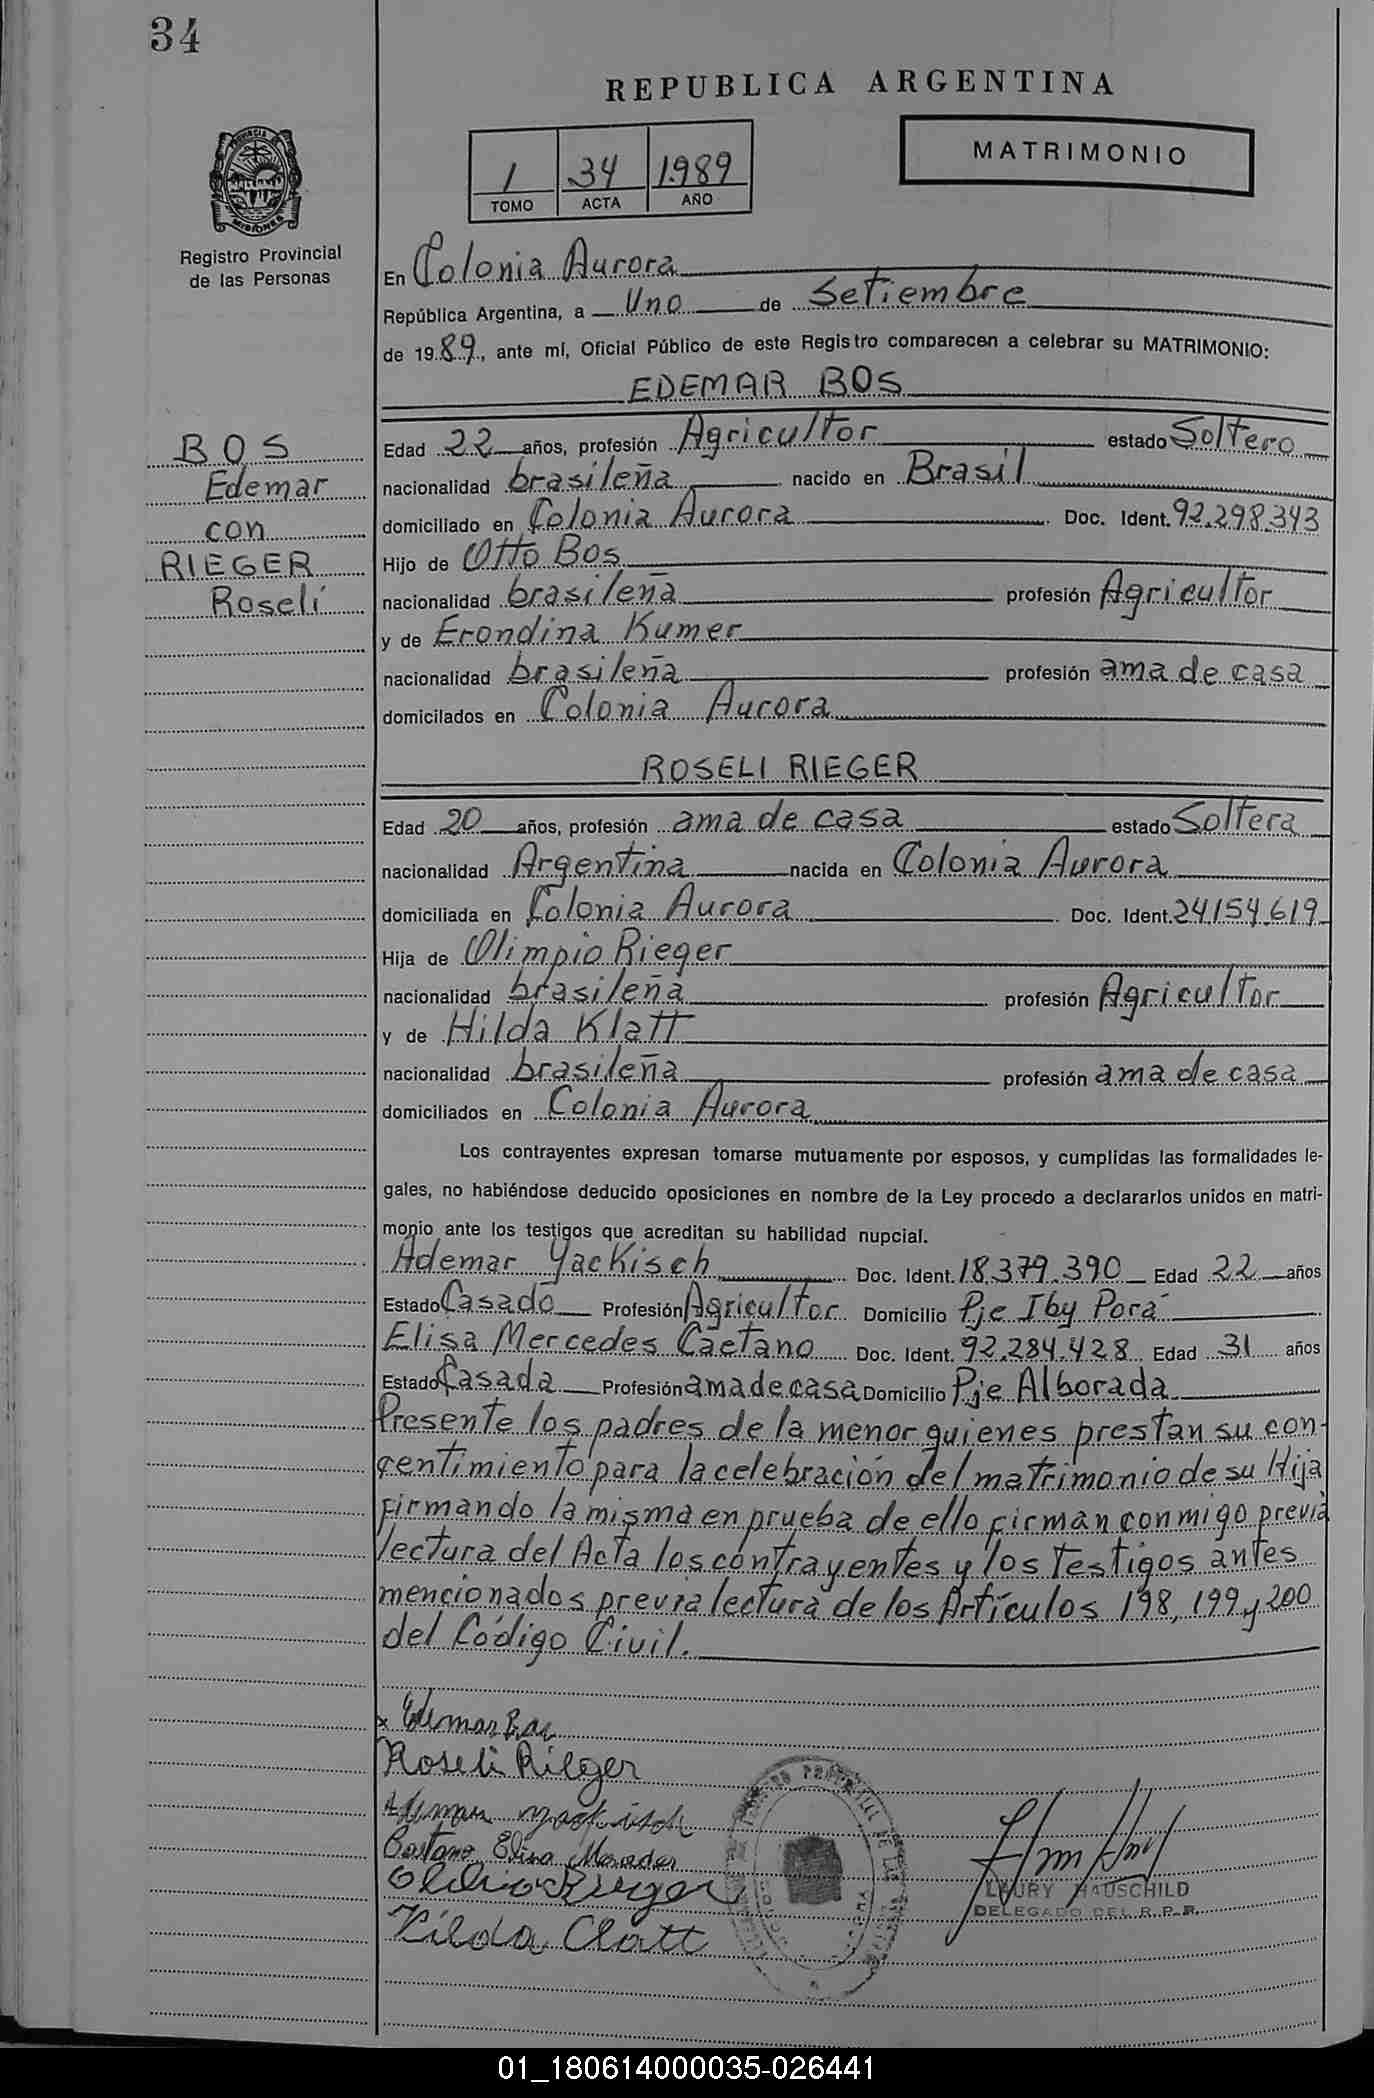 34
REPUBLICA ARGENTINA
MATRIMONIO
1 34 1989
TOMO ACTA AÑO
PROVINCIA DE
MISIONES
Registro Provincial
de las Personas
En Colonia Aurora
República Argentina, a Uno de Setiembre
de 1989, ante mí, Oficial Público de este Registro comparecen a celebrar su MATRIMONIO:
EDEMAR BOS
BOS
Edemar
con
RIEGER
Roselí
Edad 22 años, profesión Agricultor estado Soltero
nacionalidad brasileña nacido en Brasil
domiciliado en Colonia Aurora Doc. Ident. 92.298.343
Hijo de Otto Bos
nacionalidad brasileña profesión Agricultor
y de Erondina Kumer
nacionalidad brasileña profesión ama de casa
domicilados en Colonia Aurora
ROSELI RIEGER
Edad 20 años, profesión ama de casa estado Soltera
nacionalidad Argentina nacida en Colonia Aurora
domiciliada en Colonia Aurora Doc. Ident. 24.154.619
Hija de Olimpio Rieger
nacionalidad brasileña profesión Agricultor
y de Hilda Klatt
nacionalidad brasileña profesión ama de casa
domiciliados en Colonia Aurora
Los contrayentes expresan tomarse mutuamente por esposos, y cumplidas las formalidades le-
gales, no habiéndose deducido oposiciones en nombre de la Ley procedo a declararlos unidos en matri-
monio ante los testigos que acreditan su habilidad nupcial.
Ademar Yackisch Doc. Ident. 18.379.390 Edad 22 años
Estado Casado Profesión Agricultor Domicilio Pje Iby Porá
Elisa Mercedes Caetano Doc. Ident. 92.284.428 Edad 31 años
Estado Casada Profesión ama de casa Domicilio Pje Alborada
Presente los padres de la menor quienes prestan su con-
centimiento para la celebración del matrimonio de su Hija
firmando la misma en prueba de ello firman conmigo previa
lectura del Acta los contrayentes y los testigos antes
mencionados previa lectura de los Artículos 198, 199 y 200
del Código Civil.
x Edemar Bos
Roseli Rieger
Caetano Elisa Mercedes
Rieger
Hilda Clatt
LAURY HAUSCHILD
DELEGADO DEL R.P.P.
01_180614000035-026441